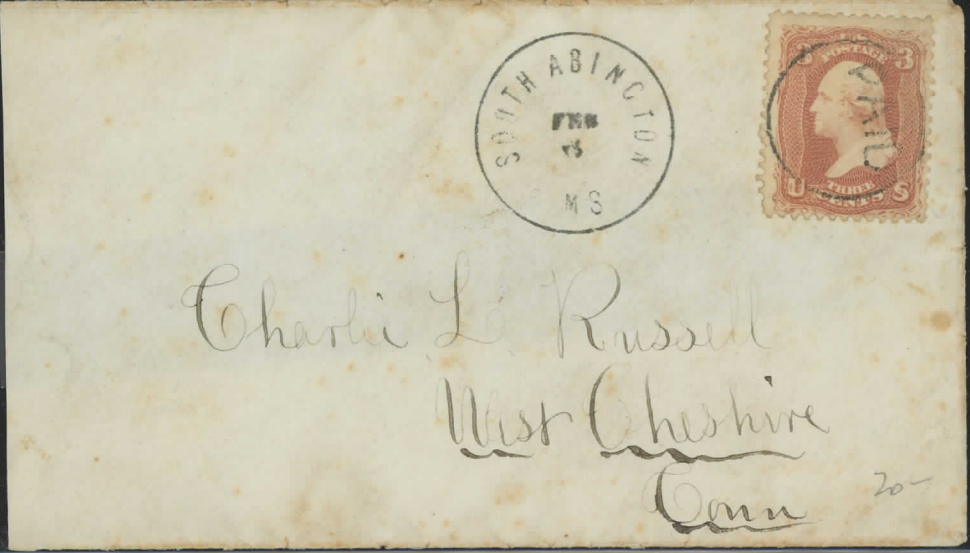 SOUTH ABINGTON
FEB
MS
POSTAGE
3
PAID
THREE
CENTS
U S
Charlie L. Russell
West Cheshire
Conn
20-